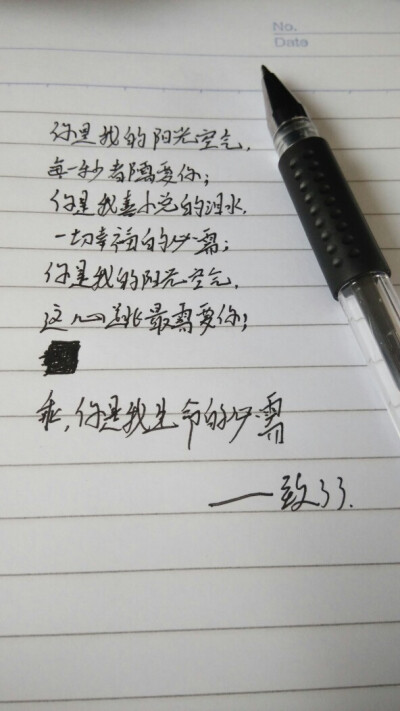 No.
Date
你是我的阳光空气,
每一秒都需要你;
你是我喜悦的泪水,
一切幸福的必需;
你是我的阳光空气,
这心跳最需要你;
乖,你是我生命的必需
——致